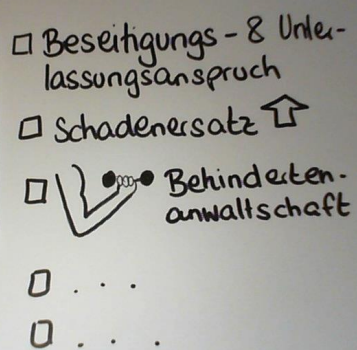 Beseitigungs- & Unter-
lassungsanspruch
Schadenersatz
Behinderten-
anwaltschaft
. . .
. . .